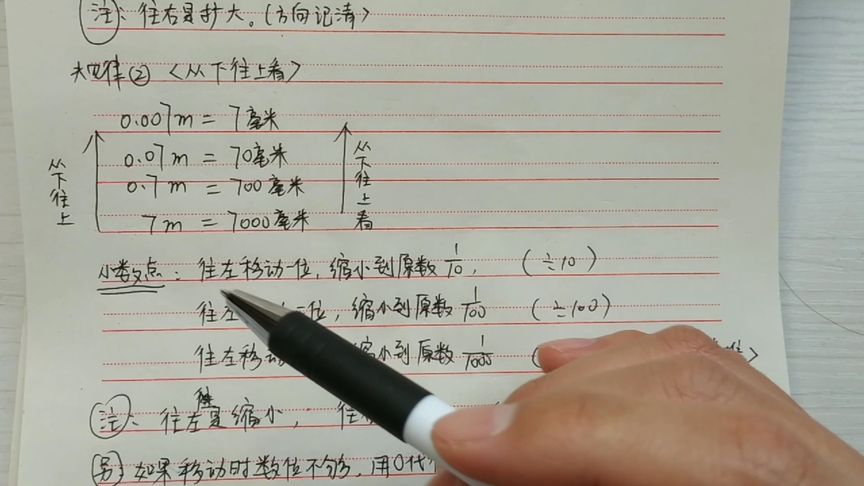 注：往右是扩大。(方向记清>
大规律② <从下往上看>
0.007m = 7毫米
0.07m = 70毫米
0.7m = 700毫米
7m = 7000毫米
从下往上
从下往上看
小数点：往左移动一位，缩小到原数 1/10， (÷10)
往左 位，缩小到原数 1/100 (÷100)
往左移动 缩小到原数 1/1000 (
注：往左是缩小，往
往
另：如果移动时数位不够，用0代